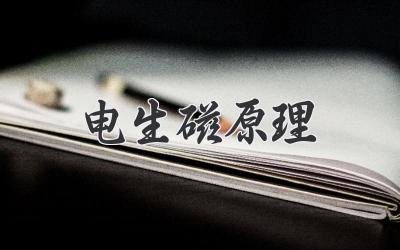 电生磁原理